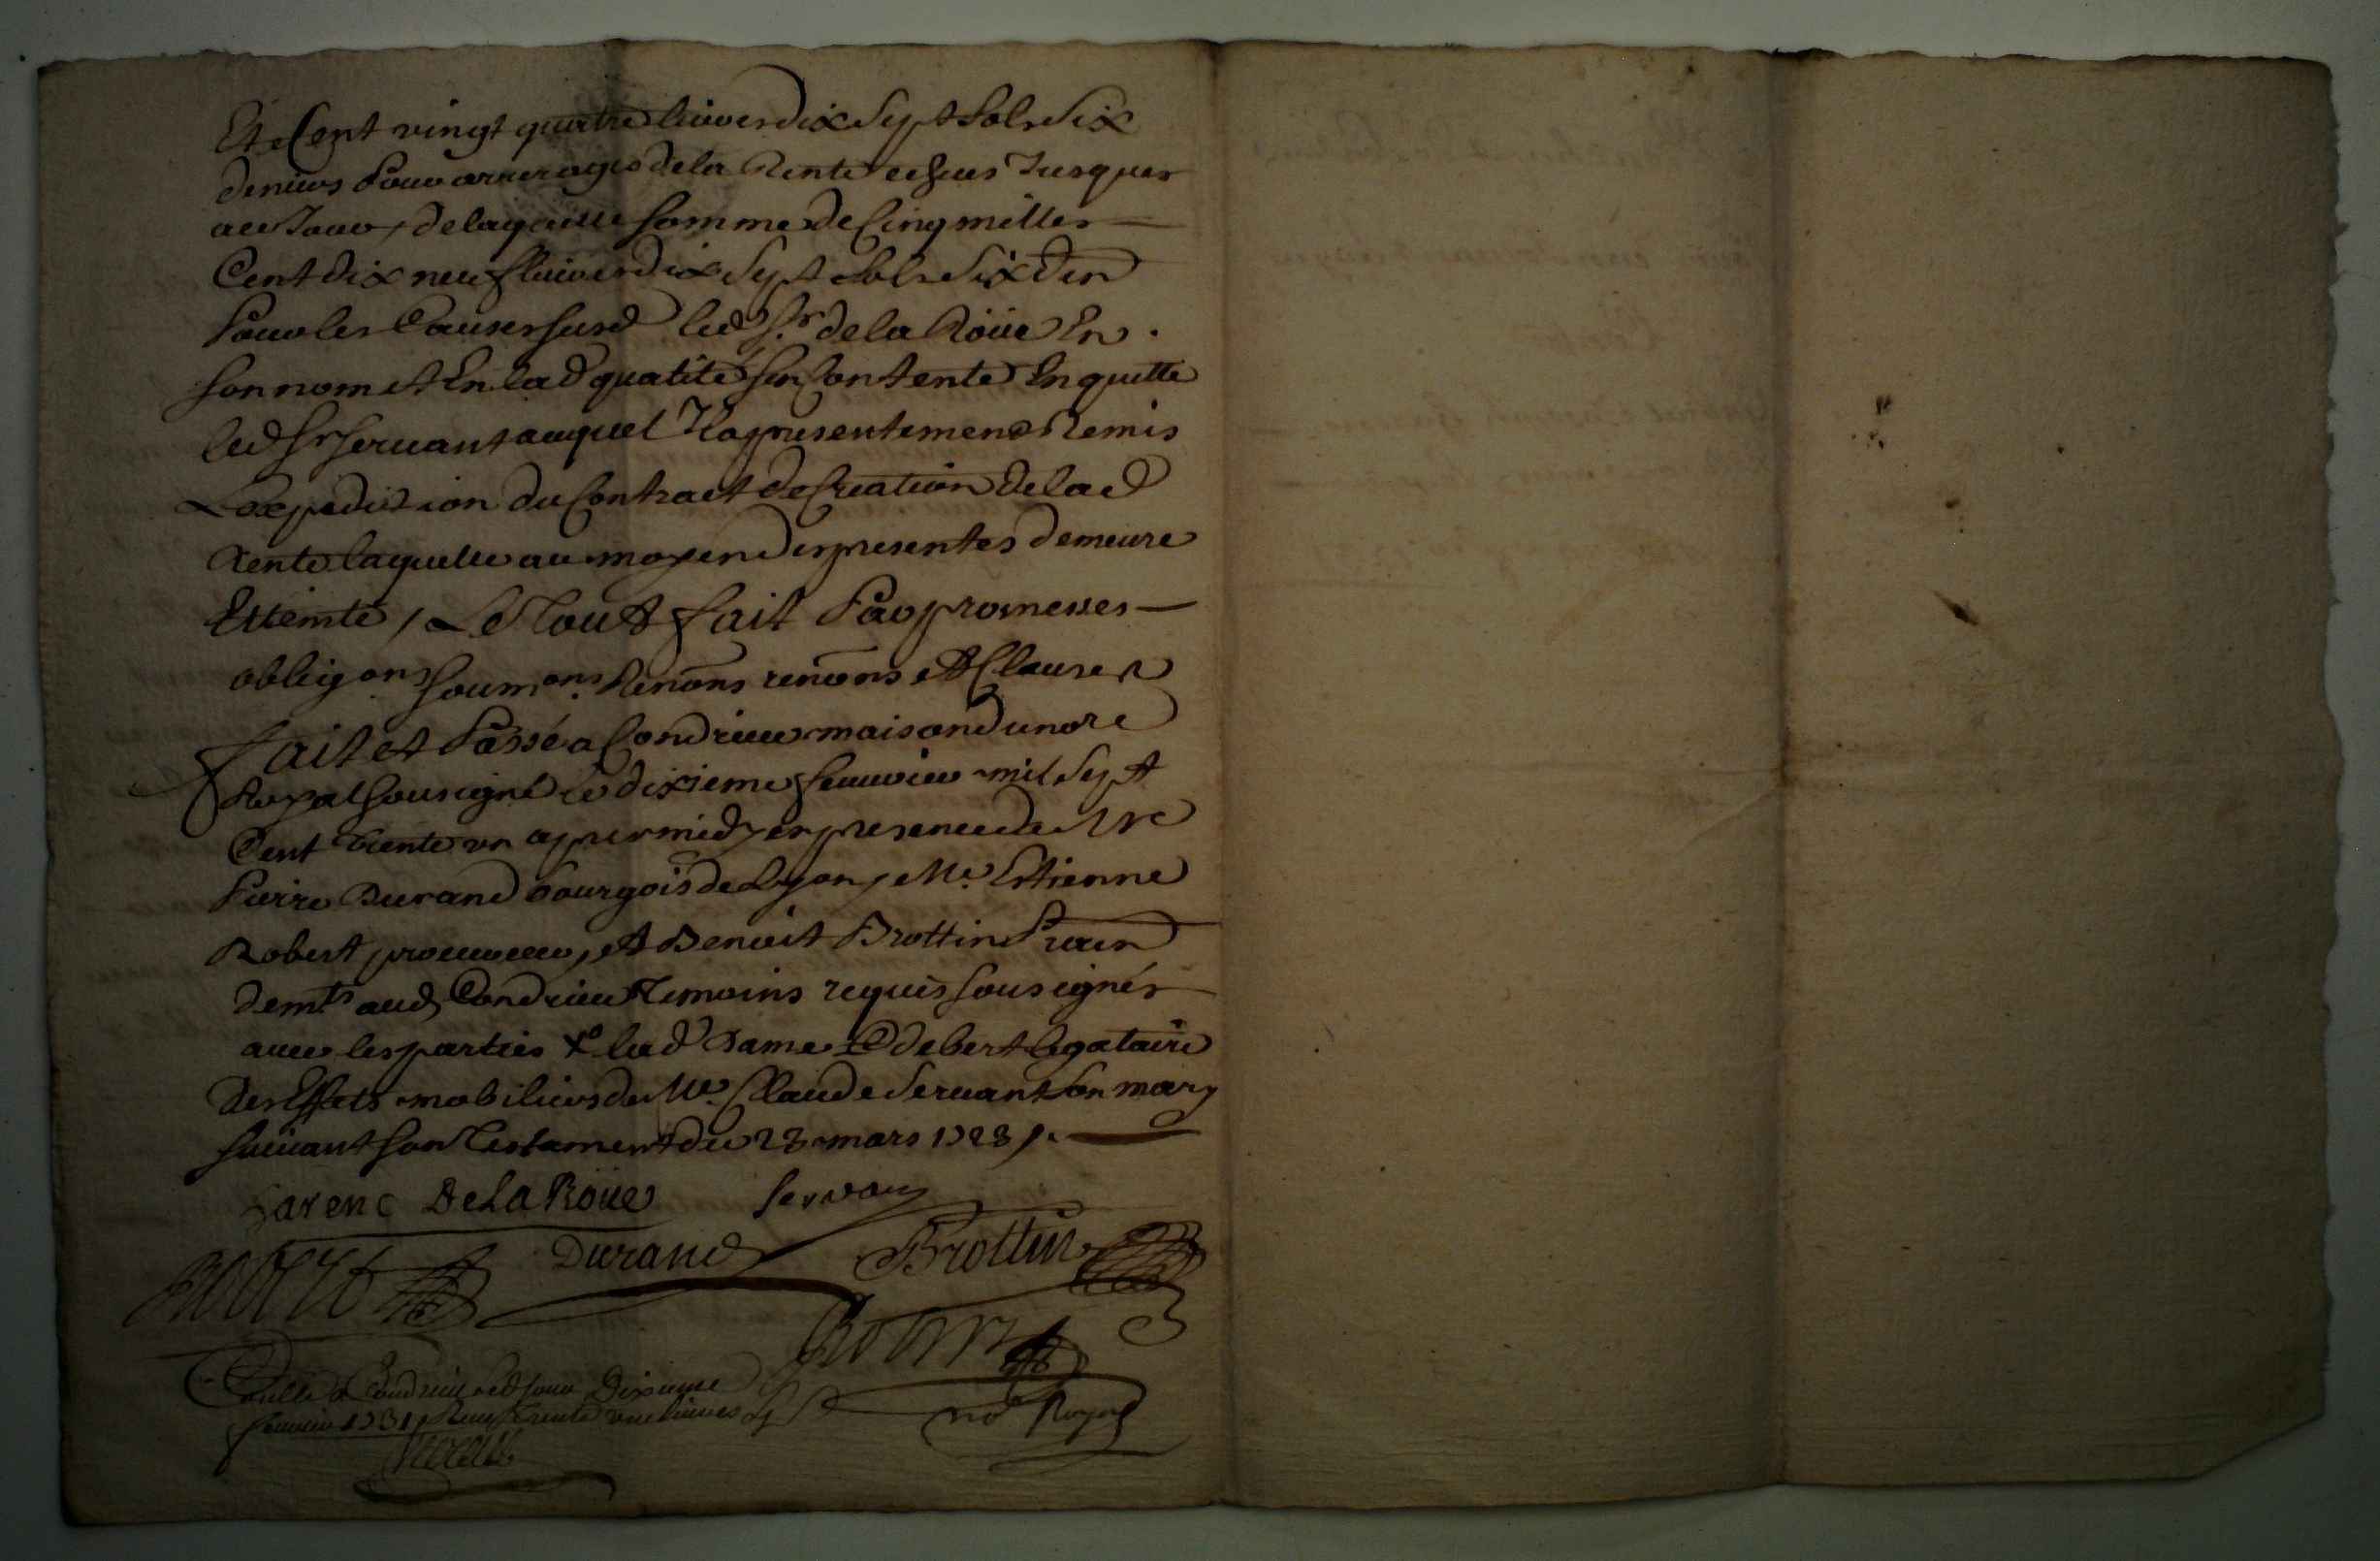 Et Cent vingt quatre livres dix Sept Sols Six
deniers Pour arrerages de la Rente echus Jusques
a ce Jour, de laquelle somme de Cinq milles
Cent dix neuf livres dix Sept Sols Six den
Pour les Causes susd led Sr. de la Roüe En
son nom et En lad qualité sen Contente En quitte
led Sr Servant auquel Il a presentement Remis
Lexpedition du Contract de Creation de lad
Rente laquelle au moyen des presentes demeure
Esteinte, Le Tout fait Par promesses
obligons soumons Renons renons et Clauses
fait et Passé a Condrieu maison du nore
Royal sousigné le dixieme Janvier mil Sept
Cent trente un apres midy en presence de Mre
Pierre Durand bourgois de Lyon, Me. Estienne
Robert procureur, et Benoit Brottin
demts aud Condrieu temoins requis sousignés
avec les parties lad Dame debert legataire
des Effets mobiliers de Me. Claude Servant son mary
suivant son Testament du 28 mars 1728
Parenc De La Roüe Servan
Robert Durand Brottin
Robert
Condrieu led jour Dixieme
Janvier 1731 Reçu trente une livres
no Royal